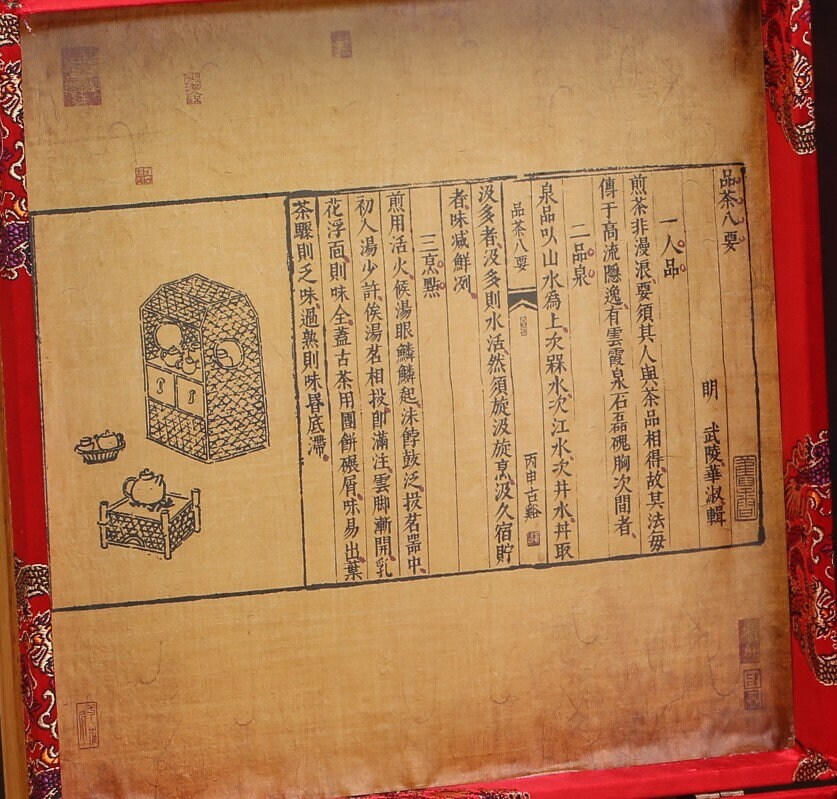 品茶八要
明 武陵華淑輯
一人品
煎茶非漫浪要須其人與茶品相得故其法每
傳于高流隱逸有雲霞泉石磊磈胸次間者
二品泉
泉品以山水為上次槑水次江水次井水丼取
品茶八要
丙申古谿
汲多者汲多則水活然須旋汲旋烹汲久宿貯
者味減鮮冽
三烹點
煎用活火候湯眼鱗鱗起沫餑鼓泛投茗器中
初入湯少許俟湯茗相投即滿注雲脚漸開乳
花浮面則味全蓋古茶用團餅碾屑味易出葉
茶驟則乏味過熟則味昬底滯